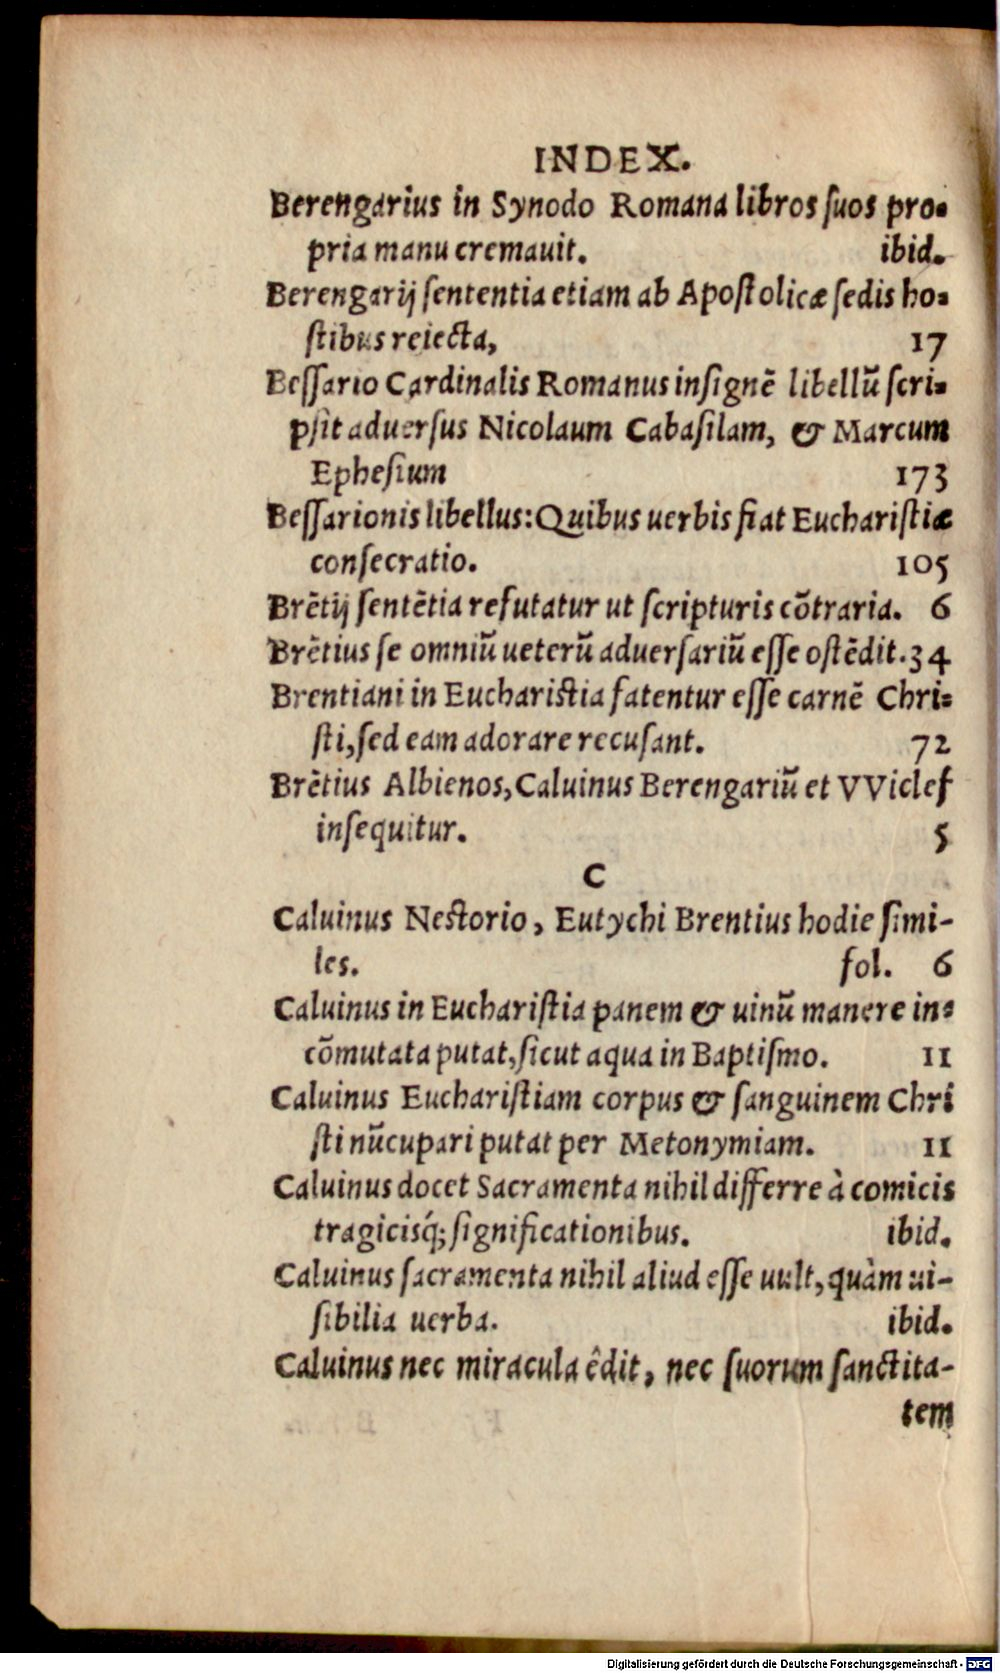 INDEX.
Berengarius in Synodo Romana libros ſuos pro-
pria manu cremauit. ibid.
Berengarij ſententia etiam ab Apoſtolicæ ſedis ho-
ſtibus reiecta, 17
Beſſario Cardinalis Romanus inſignẽ libellũ ſcri-
pſit aduerſus Nicolaum Cabaſilam, & Marcum
Epheſium 173
Beſſarionis libellus: Quibus uerbis fiat Euchariſtiæ
conſecratio. 105
Brẽtij ſentẽtia refutatur ut ſcripturis cõtraria. 6
Brẽtius ſe omniũ ueterũ aduerſariũ eſſe oſtẽdit. 34
Brentiani in Euchariſtia fatentur eſſe carnẽ Chri-
ſti, ſed eam adorare recuſant. 72
Brẽtius Albienos, Caluinus Berengariũ et VViclef
inſequitur. 5
C
Caluinus Neſtorio, Eutychi Brentius hodie ſimi-
les. fol. 6
Caluinus in Euchariſtia panem & uinũ manere in-
cõmutata putat, ſicut aqua in Baptiſmo. 11
Caluinus Euchariſtiam corpus & ſanguinem Chri
ſti nũcupari putat per Metonymiam. 11
Caluinus docet Sacramenta nihil differre à comicis
tragiciſq́; ſignificationibus. ibid.
Caluinus ſacramenta nihil aliud eſſe uult, quàm ui-
ſibilia uerba. ibid.
Caluinus nec miracula êdit, nec ſuorum ſanctita-
tem
Digitalisierung gefördert durch die Deutsche Forschungsgemeinschaft - DFG